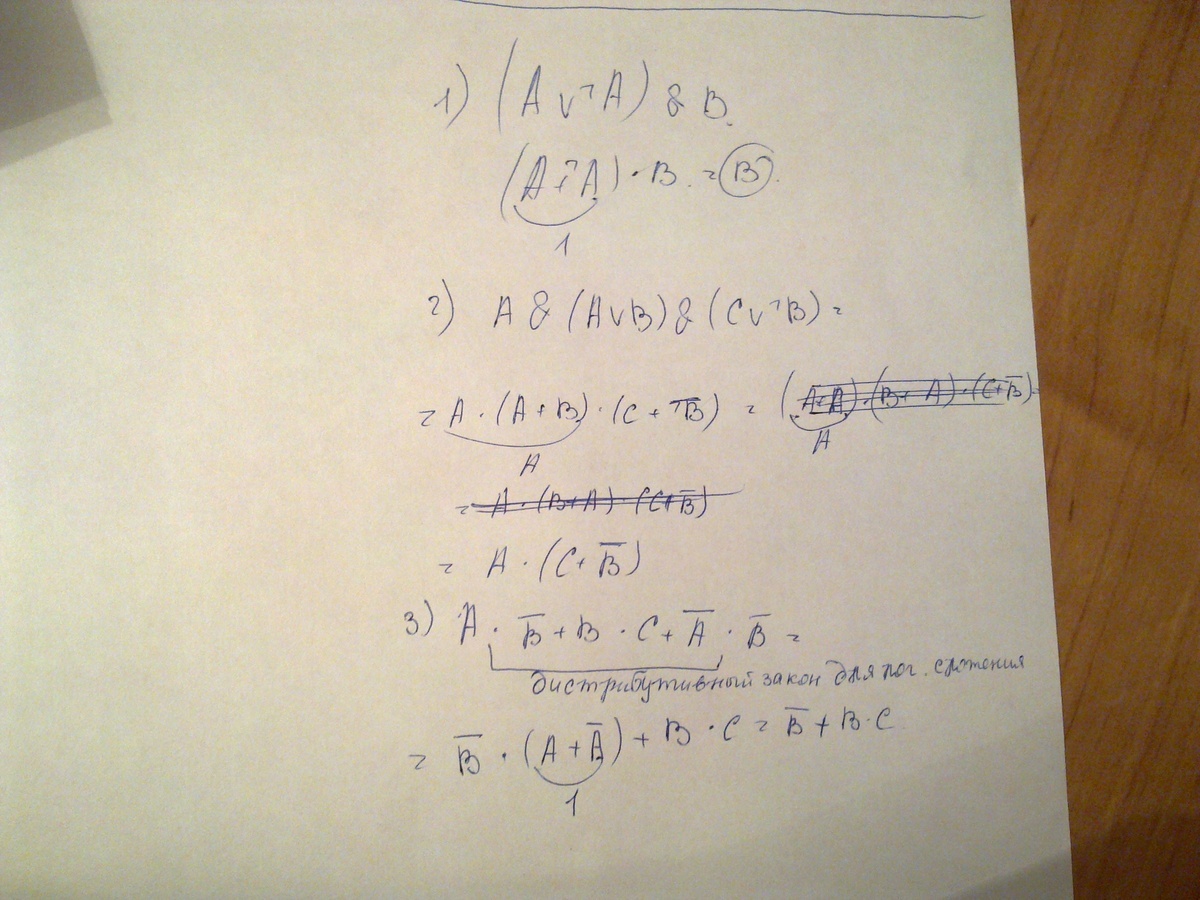 1) (A v ¬A) & B.
(A + ¬A) · B. = B.
1
2) A & (A v B) & (C v ¬B) =
= A · (A + B) · (C + ¬B) = (A+A) · (B + A) · (C+B̅) =
A A
= A · (B+A) · (C+B̅)
= A · (C + B̅)
3) A · B̅ + B · C + A̅ · B̅ =
дистрибутивный закон для лог. сложения
= B̅ · (A + A̅) + B · C = B̅ + B · C
1